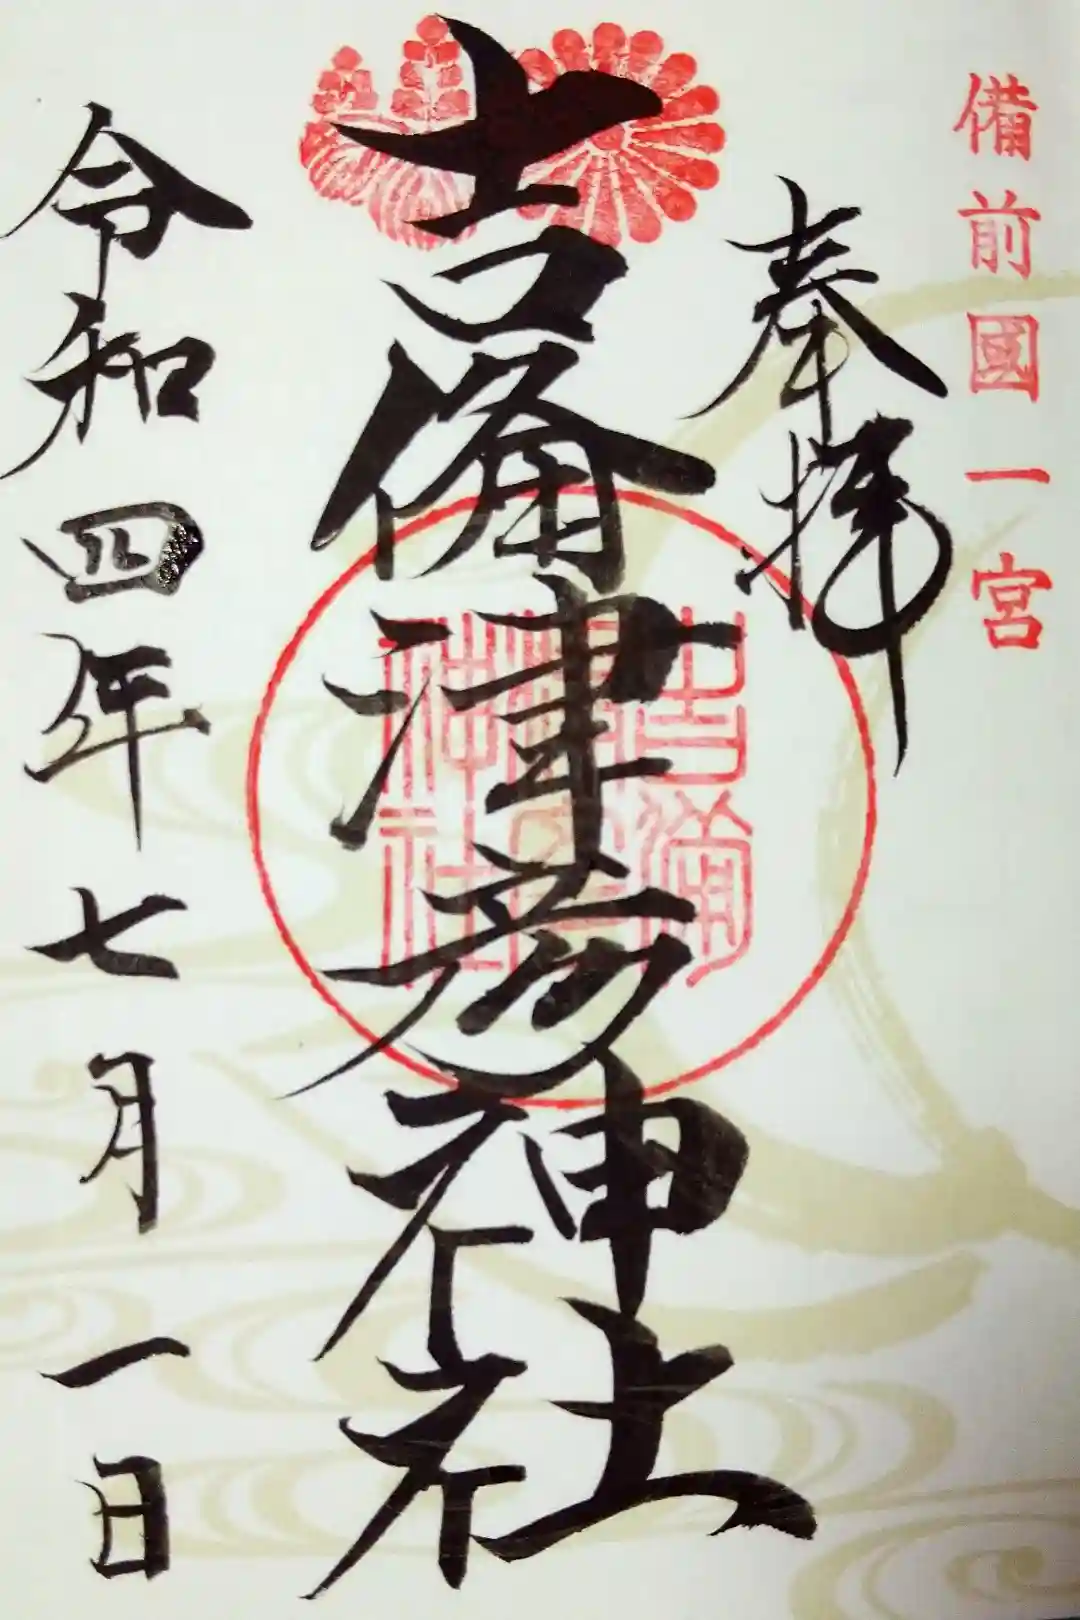 備前國一宮
奉拝
吉備津彦神社
吉備
津彦
神社
令和四年七月一日